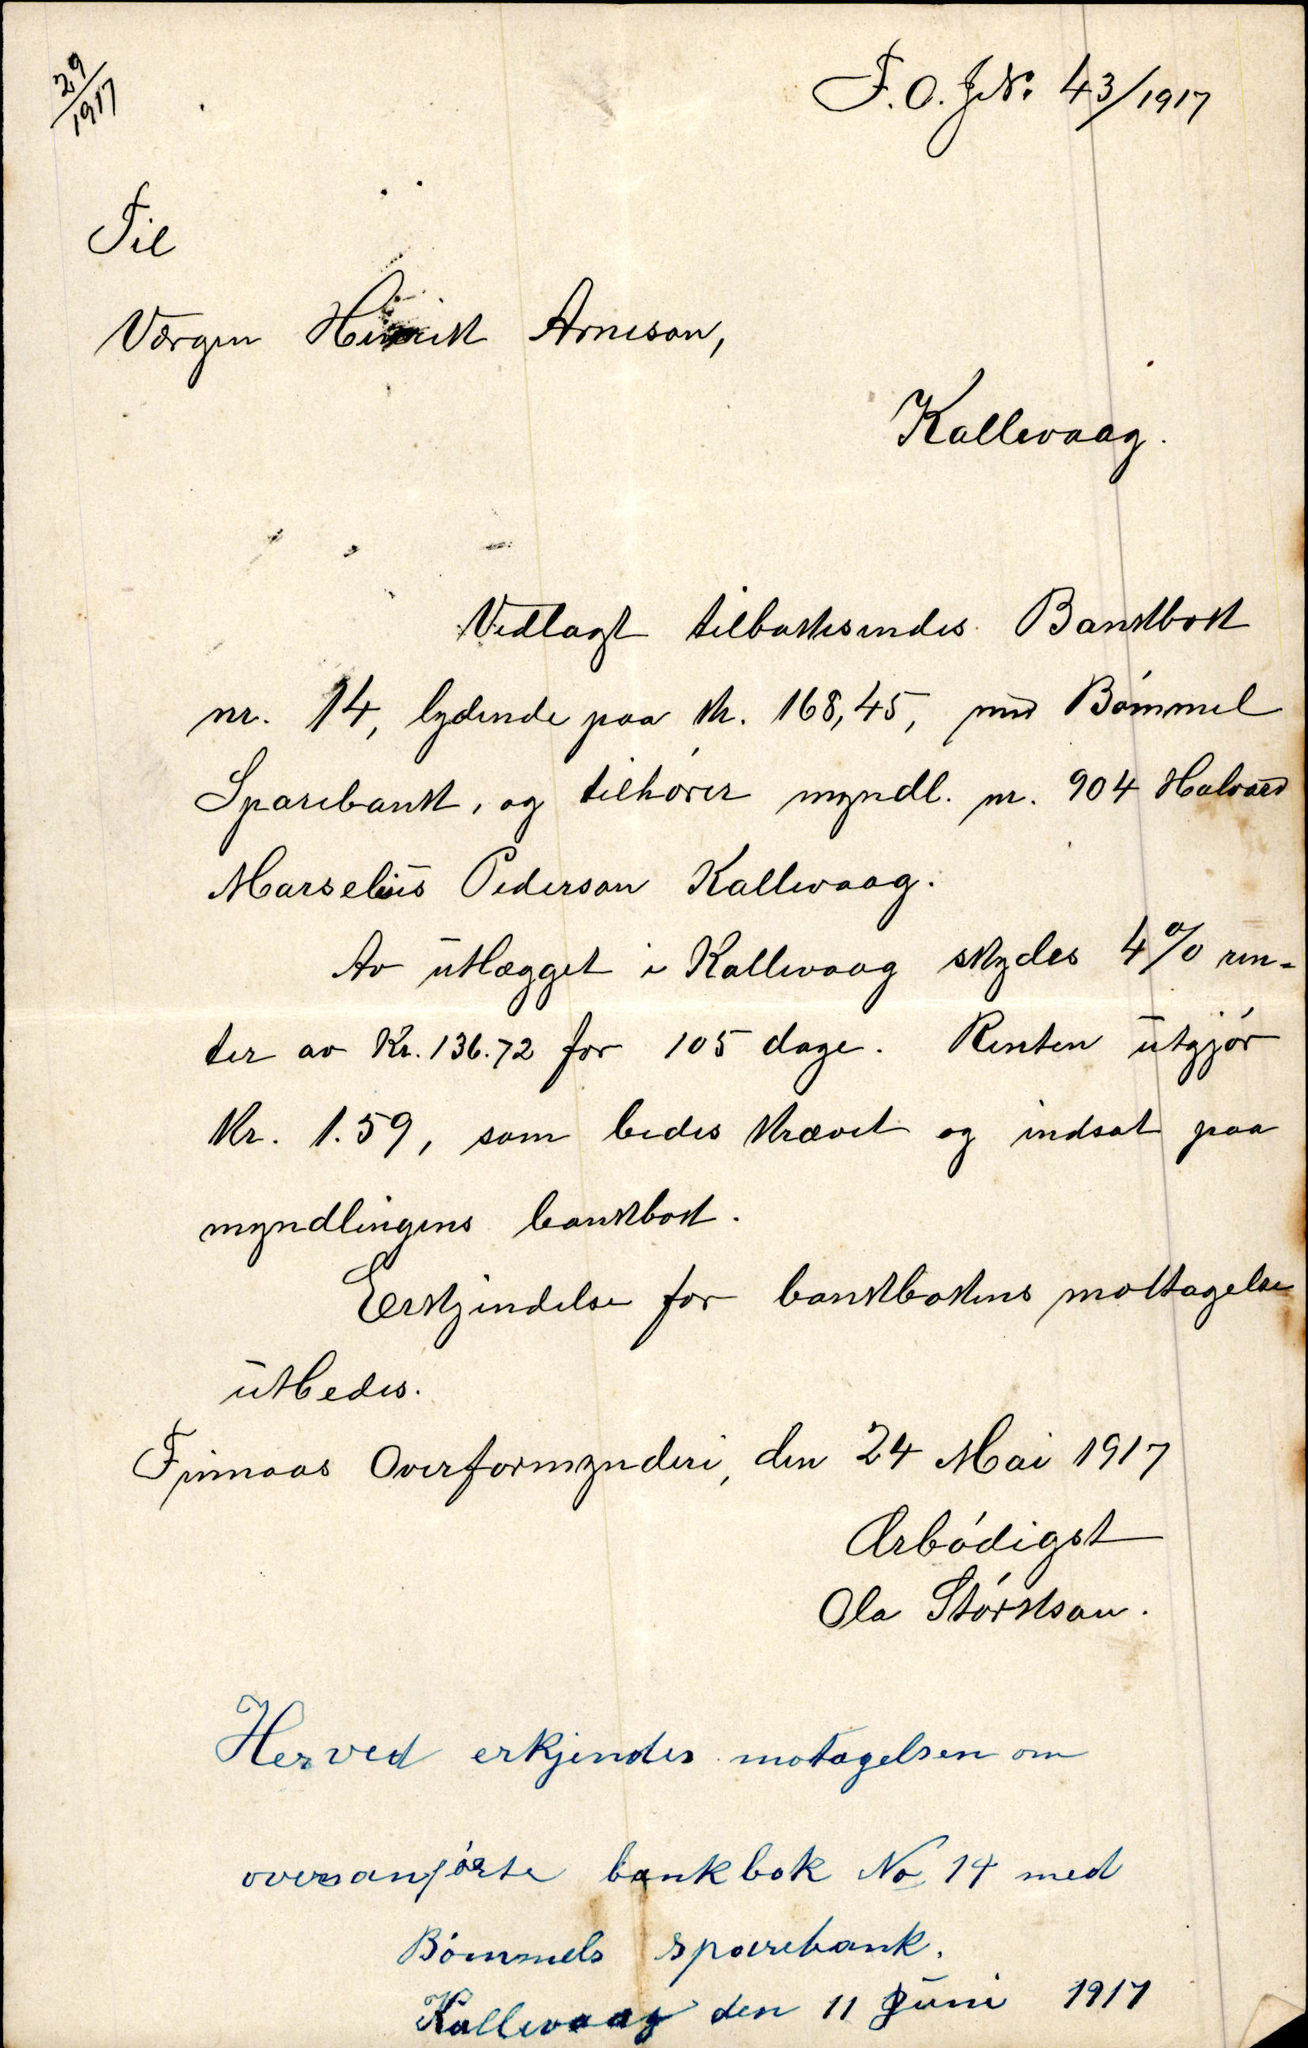 29/1917
F.O. JNr. 43/1917
Til
Værgen Henrik Arneson,
Kallevaag.
Vedlagt tilbakesendes Bankbok
nr. 14, lydende paa kr. 168,45, med Bömmel
Sparebank, og tilhörer myndl. nr. 904 Halvard
Marselius Pederson Kallevaag.
Av utlægget i Kallevaag skydes 4% ren-
ter av Kr. 136.72 for 105 dage. Renten utgjör
Kr. 1.59, som bedes krævet og indsat paa
myndlingens bankbok.
Erkjendelse for bankbokens mottagelse
utbedes.
Finnaas Overformynderi, den 24 Mai 1917
Ærbödigst
Ola Störkson.
Herved erkjendes motagelsen om
overanförte bankbok No 14 med
Bömmels sparebank.
Kallevaag den 11 Juni 1917